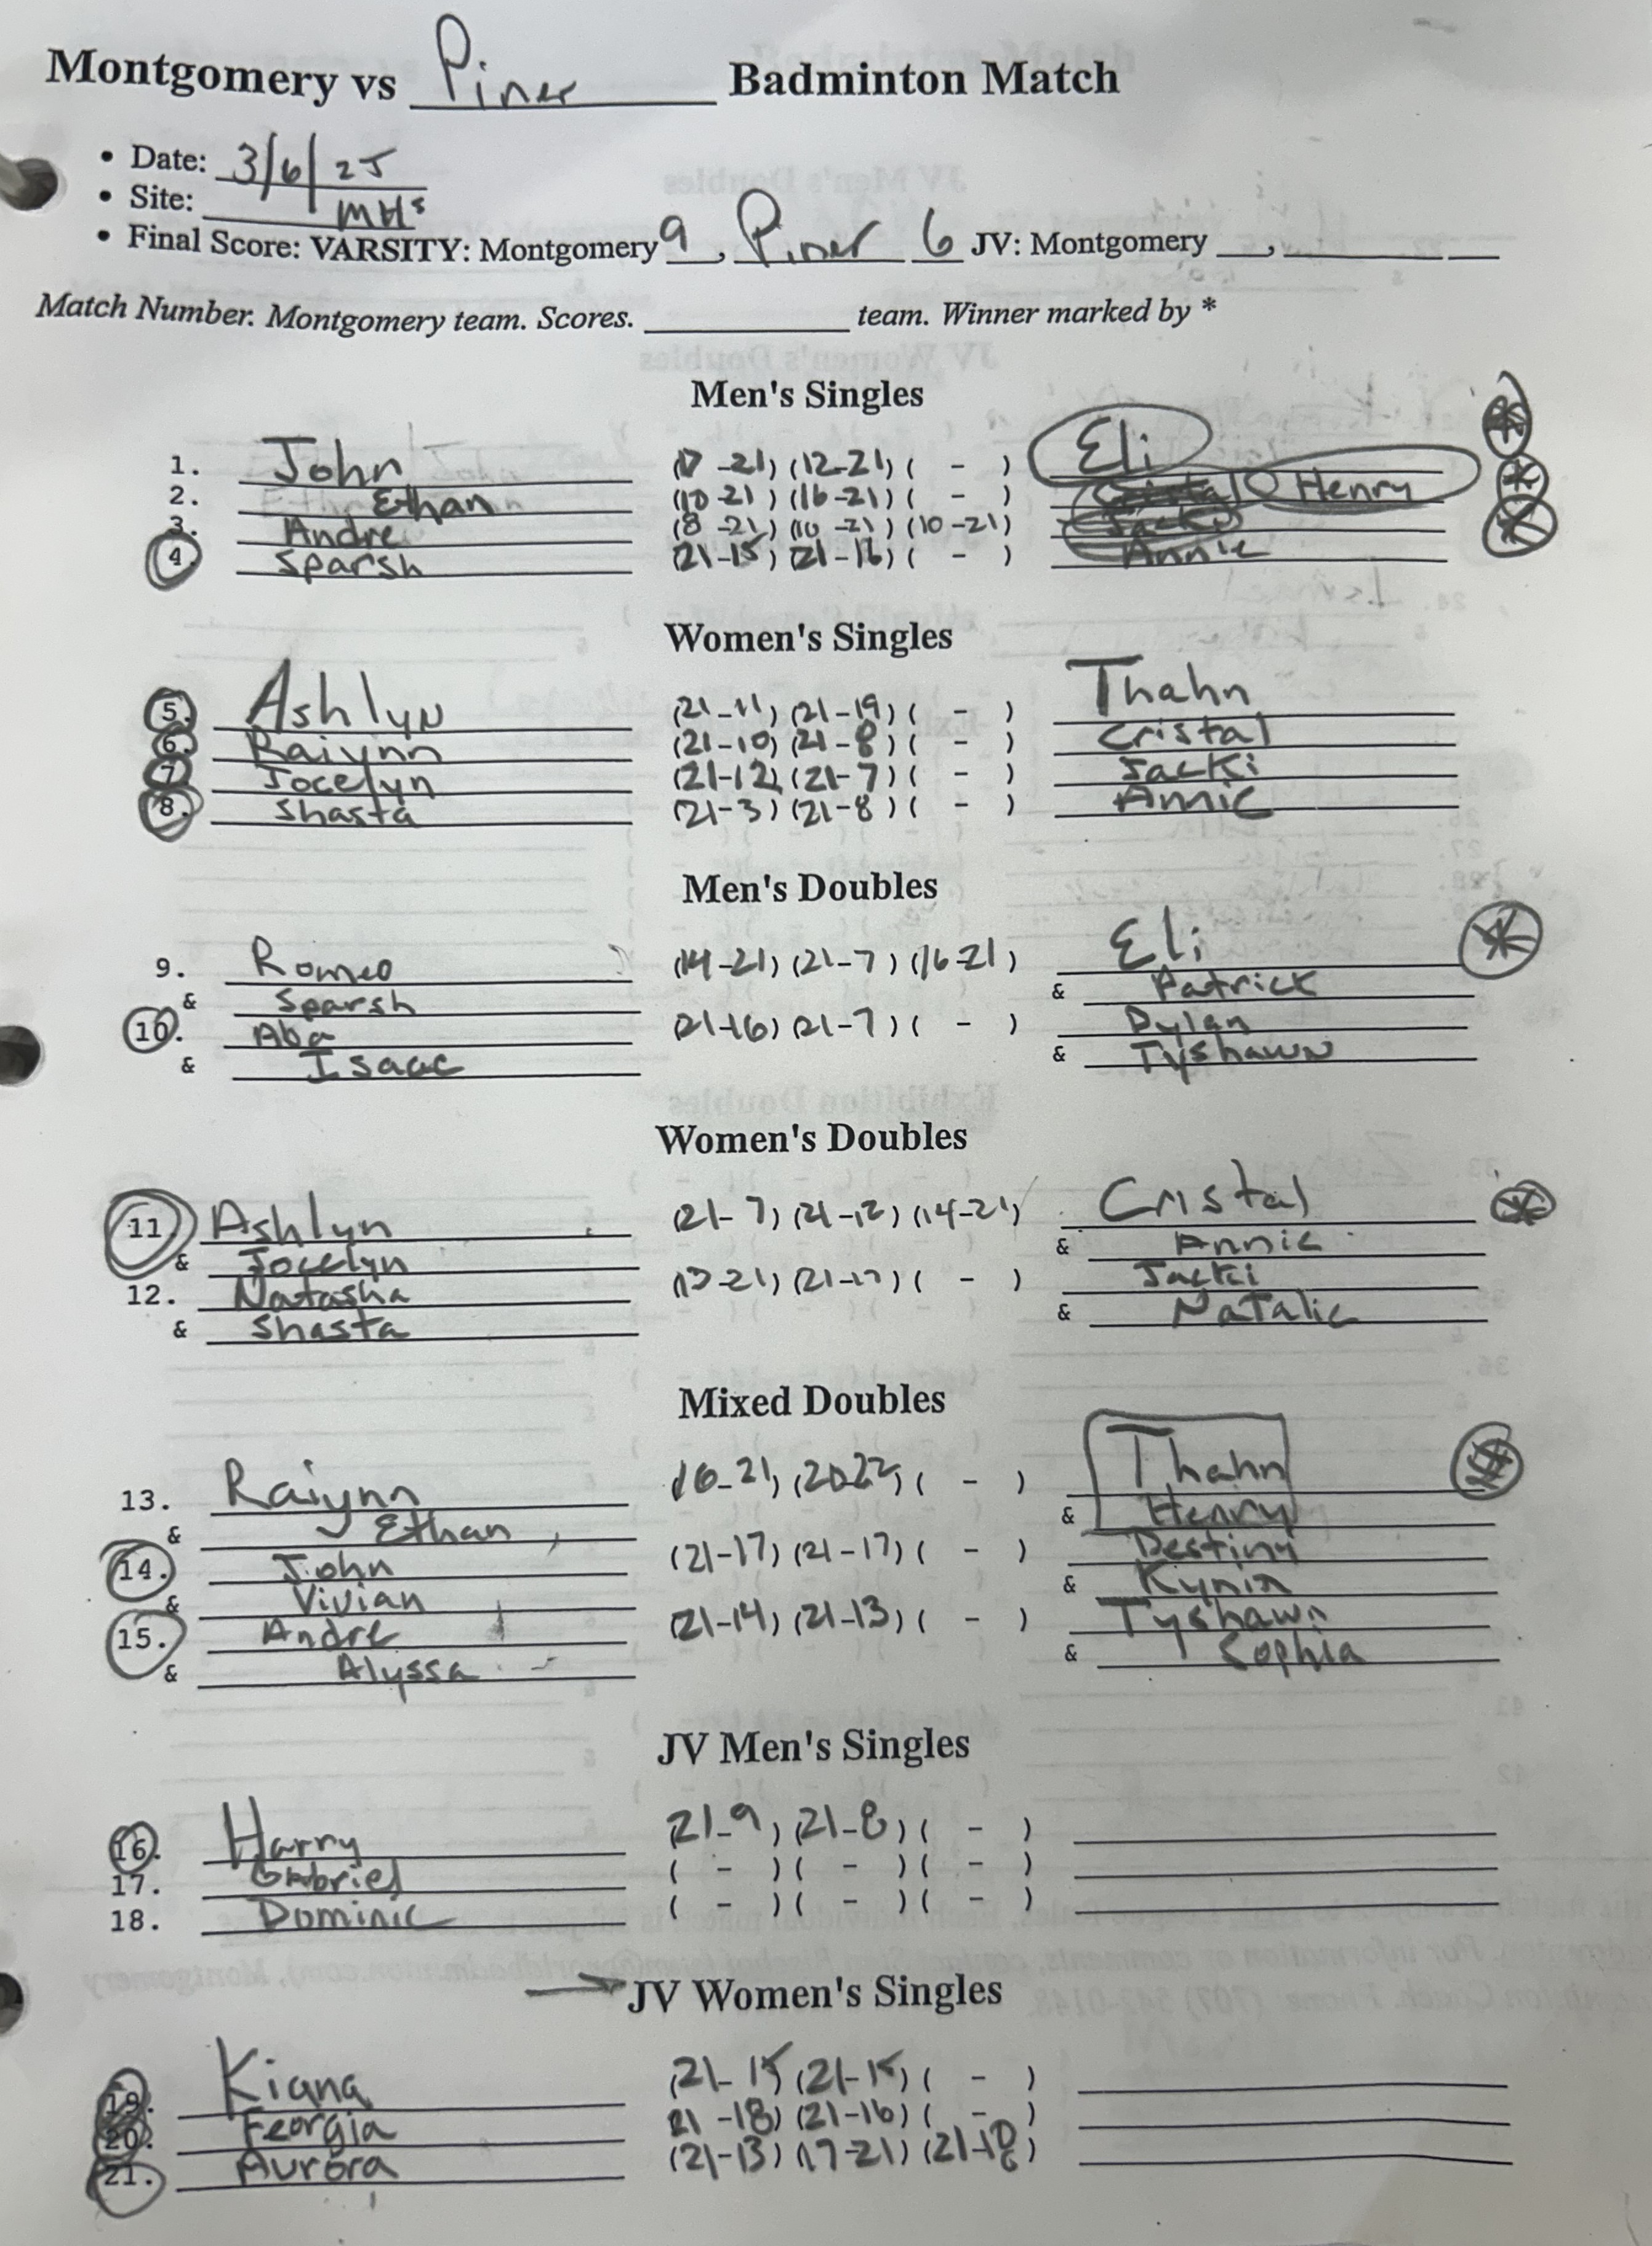 Montgomery vs Piner Badminton Match
• Date: 3/6/25
• Site: MHS
• Final Score: VARSITY: Montgomery 9, Piner 6 JV: Montgomery ___, ___ ___
Match Number. Montgomery team. Scores. ___ team. Winner marked by *
Men's Singles
1. John (17-21) (12-21) ( - ) Eli *
2. Ethan (10-21) (16-21) ( - ) Cristal Henry *
3. Andre (8-21) (10-21) (10-21) Jacki *
4. Sparsh (21-15) (21-16) ( - ) Annie
Women's Singles
5. Ashlyn (21-11) (21-19) ( - ) Thahn
6. Raiynn (21-10) (21-8) ( - ) Cristal
7. Jocelyn (21-12) (21-7) ( - ) Jacki
8. Shasta (21-3) (21-8) ( - ) Annie
Men's Doubles
9. Romeo (14-21) (21-7) (16-21) Eli *
& Sparsh & Patrick
10. Aba (21-16) (21-7) ( - ) Dylan
& Isaac & Tyshawn
Women's Doubles
11. Ashlyn (21-7) (21-12) (14-21) Cristal *
& Jocelyn & Annie
12. Natasha ( -21) (21- ) ( - ) Jacki
& Shasta & Natalie
Mixed Doubles
13. Raiynn (16-21) (20-22) ( - ) Thahn *
& Ethan & Henry
14. John (21-17) (21-17) ( - ) Destiny
& Vivian & Kynin
15. Andre (21-14) (21-13) ( - ) Tyshawn
& Alyssa & Sophia
JV Men's Singles
16. Harry (21-9) (21-8) ( - )
17. Gabriel ( - ) ( - ) ( - )
18. Dominic ( - ) ( - ) ( - )
→ JV Women's Singles
19. Kiana (21-15) (21-15) ( - )
20. Feorgia (21-18) (21-16) ( - )
21. Aurora (21-13) (17-21) (21- )